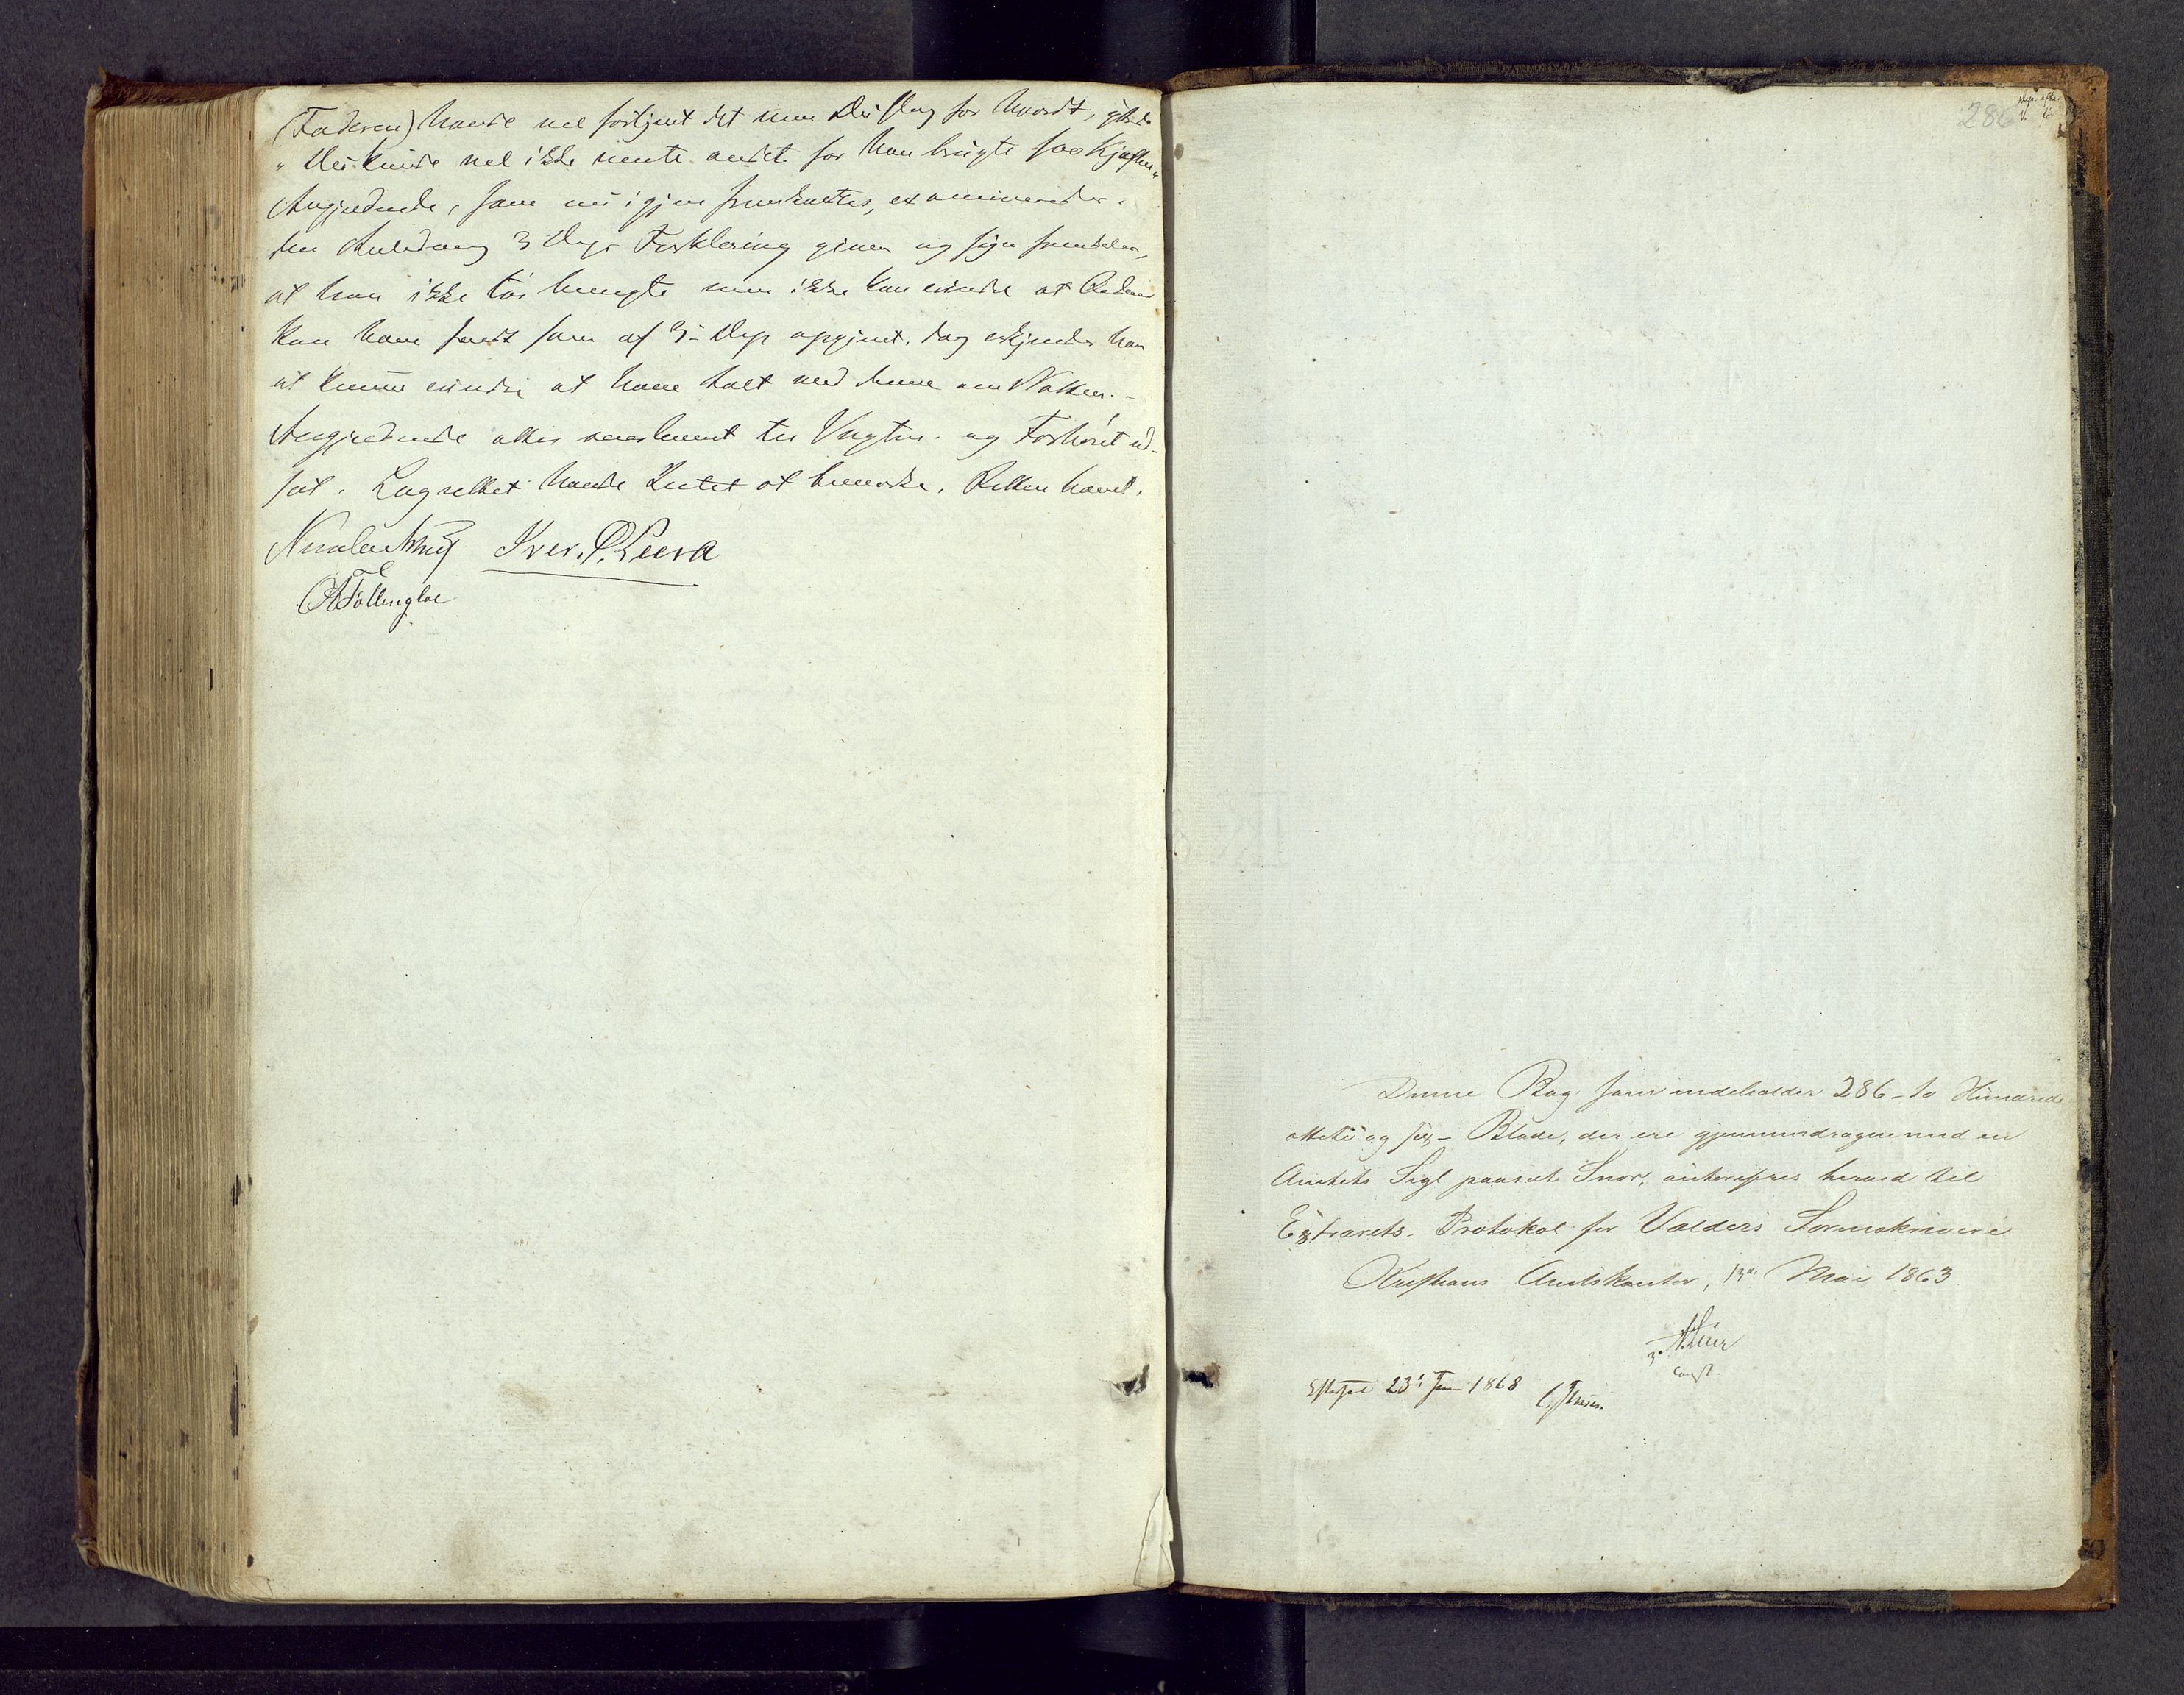 (Faderen) havde vel fortjent det men Du slog for haardt,
„Du kunde vel ikke vente andet for han brugte saa Kjæften“
Angjældende, som nu igjen fremkaldtes, examineredes.
den Anledning 3 Vdn's Forklaring giver og siger fremdeles,
at han ikke tør benægte men ikke kan erindre at Ordene
kan have faldt som af 3 Vdn opgivet. dog erkjender han
at kunne erindre at have talt med denne om Natten. –
Angjældende atter henleveret til Vagten. og Forhøret ud-
sat. Lagrettet havde Intet at bemærke. Retten hævet.
Iver. P. Leera
Føllingloe
286
Denne Bog som indeholder 286 – to Hundrede
otteti og sex – Blade, der ere gjennemdragne med en
Amtets Segl paasat Snor, autoriseres herved til
Extrarets-Protokol for Valders Sorenskriveri
Kristians Amtskontor, 13de Mai 1863
Const.
Efterseet 23de Juni 1868